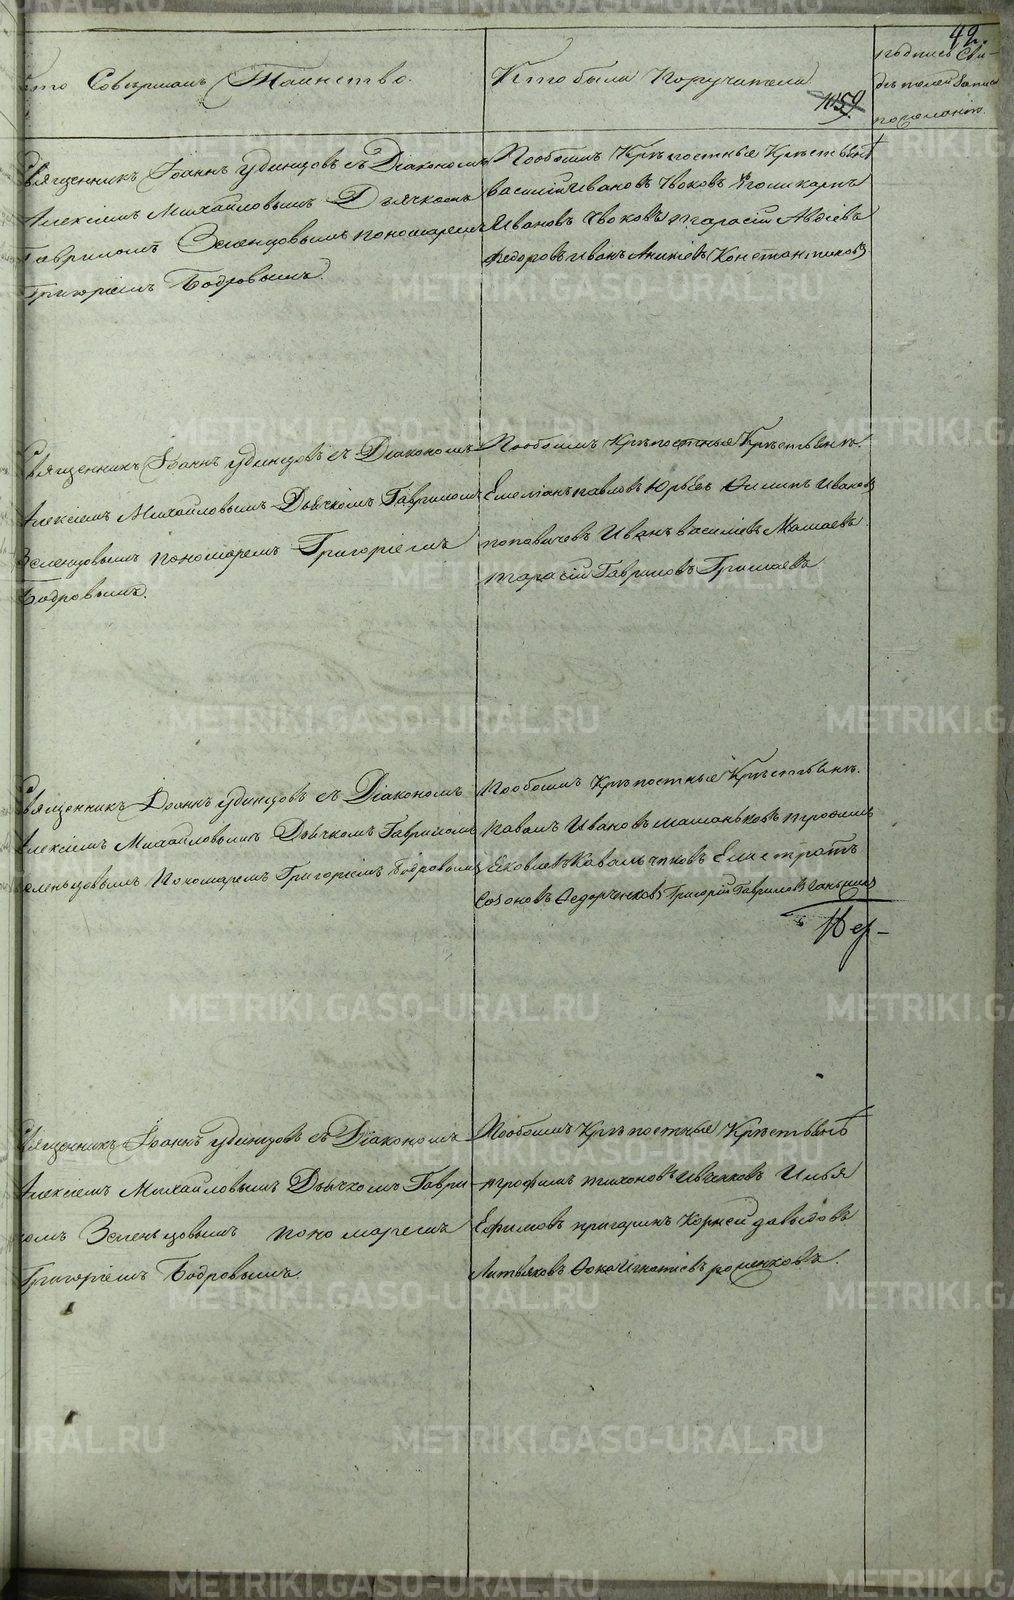 42.
Кто Совершалъ Таинство.
Кто были Поручатели
подпись Сви-
дѣтелей Записи
пожеланію.
№59
Священникъ Іоаннъ Удинцовъ съ Діакономъ
Алексіемъ Михайловымъ Дьячкомъ
Гавриломъ Зеленцовымъ пономаремъ
Григоріемъ Бодровымъ.
Пообоимъ Крѣпостные Крѣстьянѣ
василій Ивановъ Зюковъ Поликарпъ
Ивановъ Зюковъ тарасій Авдіевъ
Федоровъ иванъ Аникіевъ Константиновъ
Священникъ Іоаннъ Удинцовъ съ Діакономъ
Алексіемъ Михайловымъ Дьячкомъ Гавриломъ
Зеленцовымъ пономаремъ Григоріемъ
Бодровымъ.
Пообоимъ Крѣпостные Крѣстьянѣ
Емеліанъ павловъ Юрьевъ Филипъ Ивановъ
поповичевъ Иванъ василіевъ Мамаевъ
тарасій Гавриловъ Гришаевъ
Священникъ Іоаннъ Удинцовъ съ Діакономъ
Алексіемъ Михайловымъ Дьячкомъ Гавриломъ
Зеленьцовымъ Пономаремъ Григоріемъ Бодровымъ
Пообоимъ Крѣпостные Крѣстьянѣ.
павелъ Ивановъ трофимъ
Яковлевъ Елистратъ
Созоновъ Федорченковъ Григорій Гавриловъ
Священникъ Іоаннъ Удинцовъ съ Діакономъ
Алексіемъ Михайловымъ Дьячкомъ Гаври-
ломъ Зеленьцовымъ пономаремъ
Григоріемъ Бодровымъ.
Пообоимъ Крѣпостные Крѣстьянѣ
трофимъ тихоновъ Ивченковъ Илья
Ефимовъ пригаринъ Корней давыдовъ
Литвяковъ Фока Игнатіевъ роменковъ.
METRIKI.GASO-URAL.RU